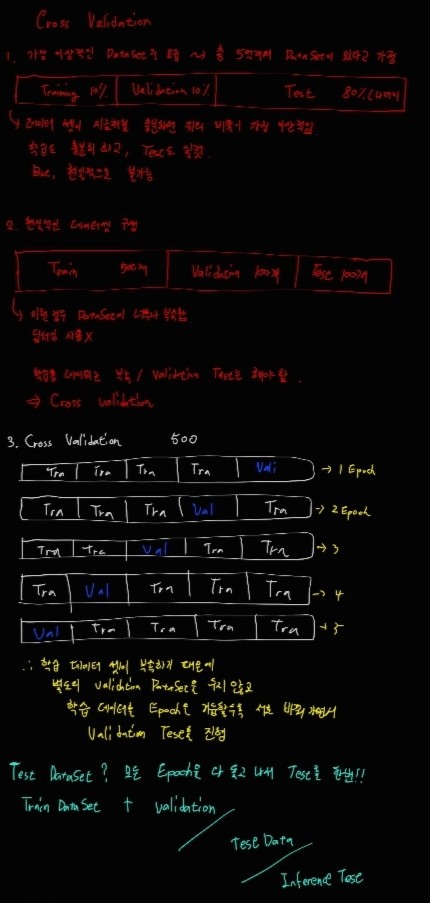 Cross Validation
1. 가장 이상적인 DataSet의 모습 ~> 총 5억개의 DataSet이 있다고 가정
Training 10% Validation 10% Test 80% (4억개)
↳ 데이터 셋이 지금처럼 충분하면 위의 비율이 가장 이상적임
학습도 충분히 하고, Test도 실컷.
But, 현실적으로 불가능
2. 현실적인 데이터셋 구성
Train 500개 Validation 100개 Test 100개
↳ 이런 경우 DataSet이 너무나 부족함
딥러닝 사용 X
학습용 데이터는 부족 / Validation Test는 해야 함.
⇒ Cross validation
3. Cross Validation 500
Tra Tra Tra Tra Vali → 1 Epoch
Tra Tra Tra Val Tra → 2 Epoch
Tra Tra Val Tra Tra → 3
Tra Val Tra Tra Tra → 4
Val Tra Tra Tra Tra → 5
∴ 학습 데이터 셋이 부족하기 때문에
별도의 Validation DataSet을 두지 않고
학습 데이터를 Epoch을 거듭할수록 서로 바꿔 가면서
Validation Test를 진행
Test DataSet? 모든 Epoch을 다 돌고 나서 Test를 한번!!
Train DataSet + validation
Test Data
Inference Test